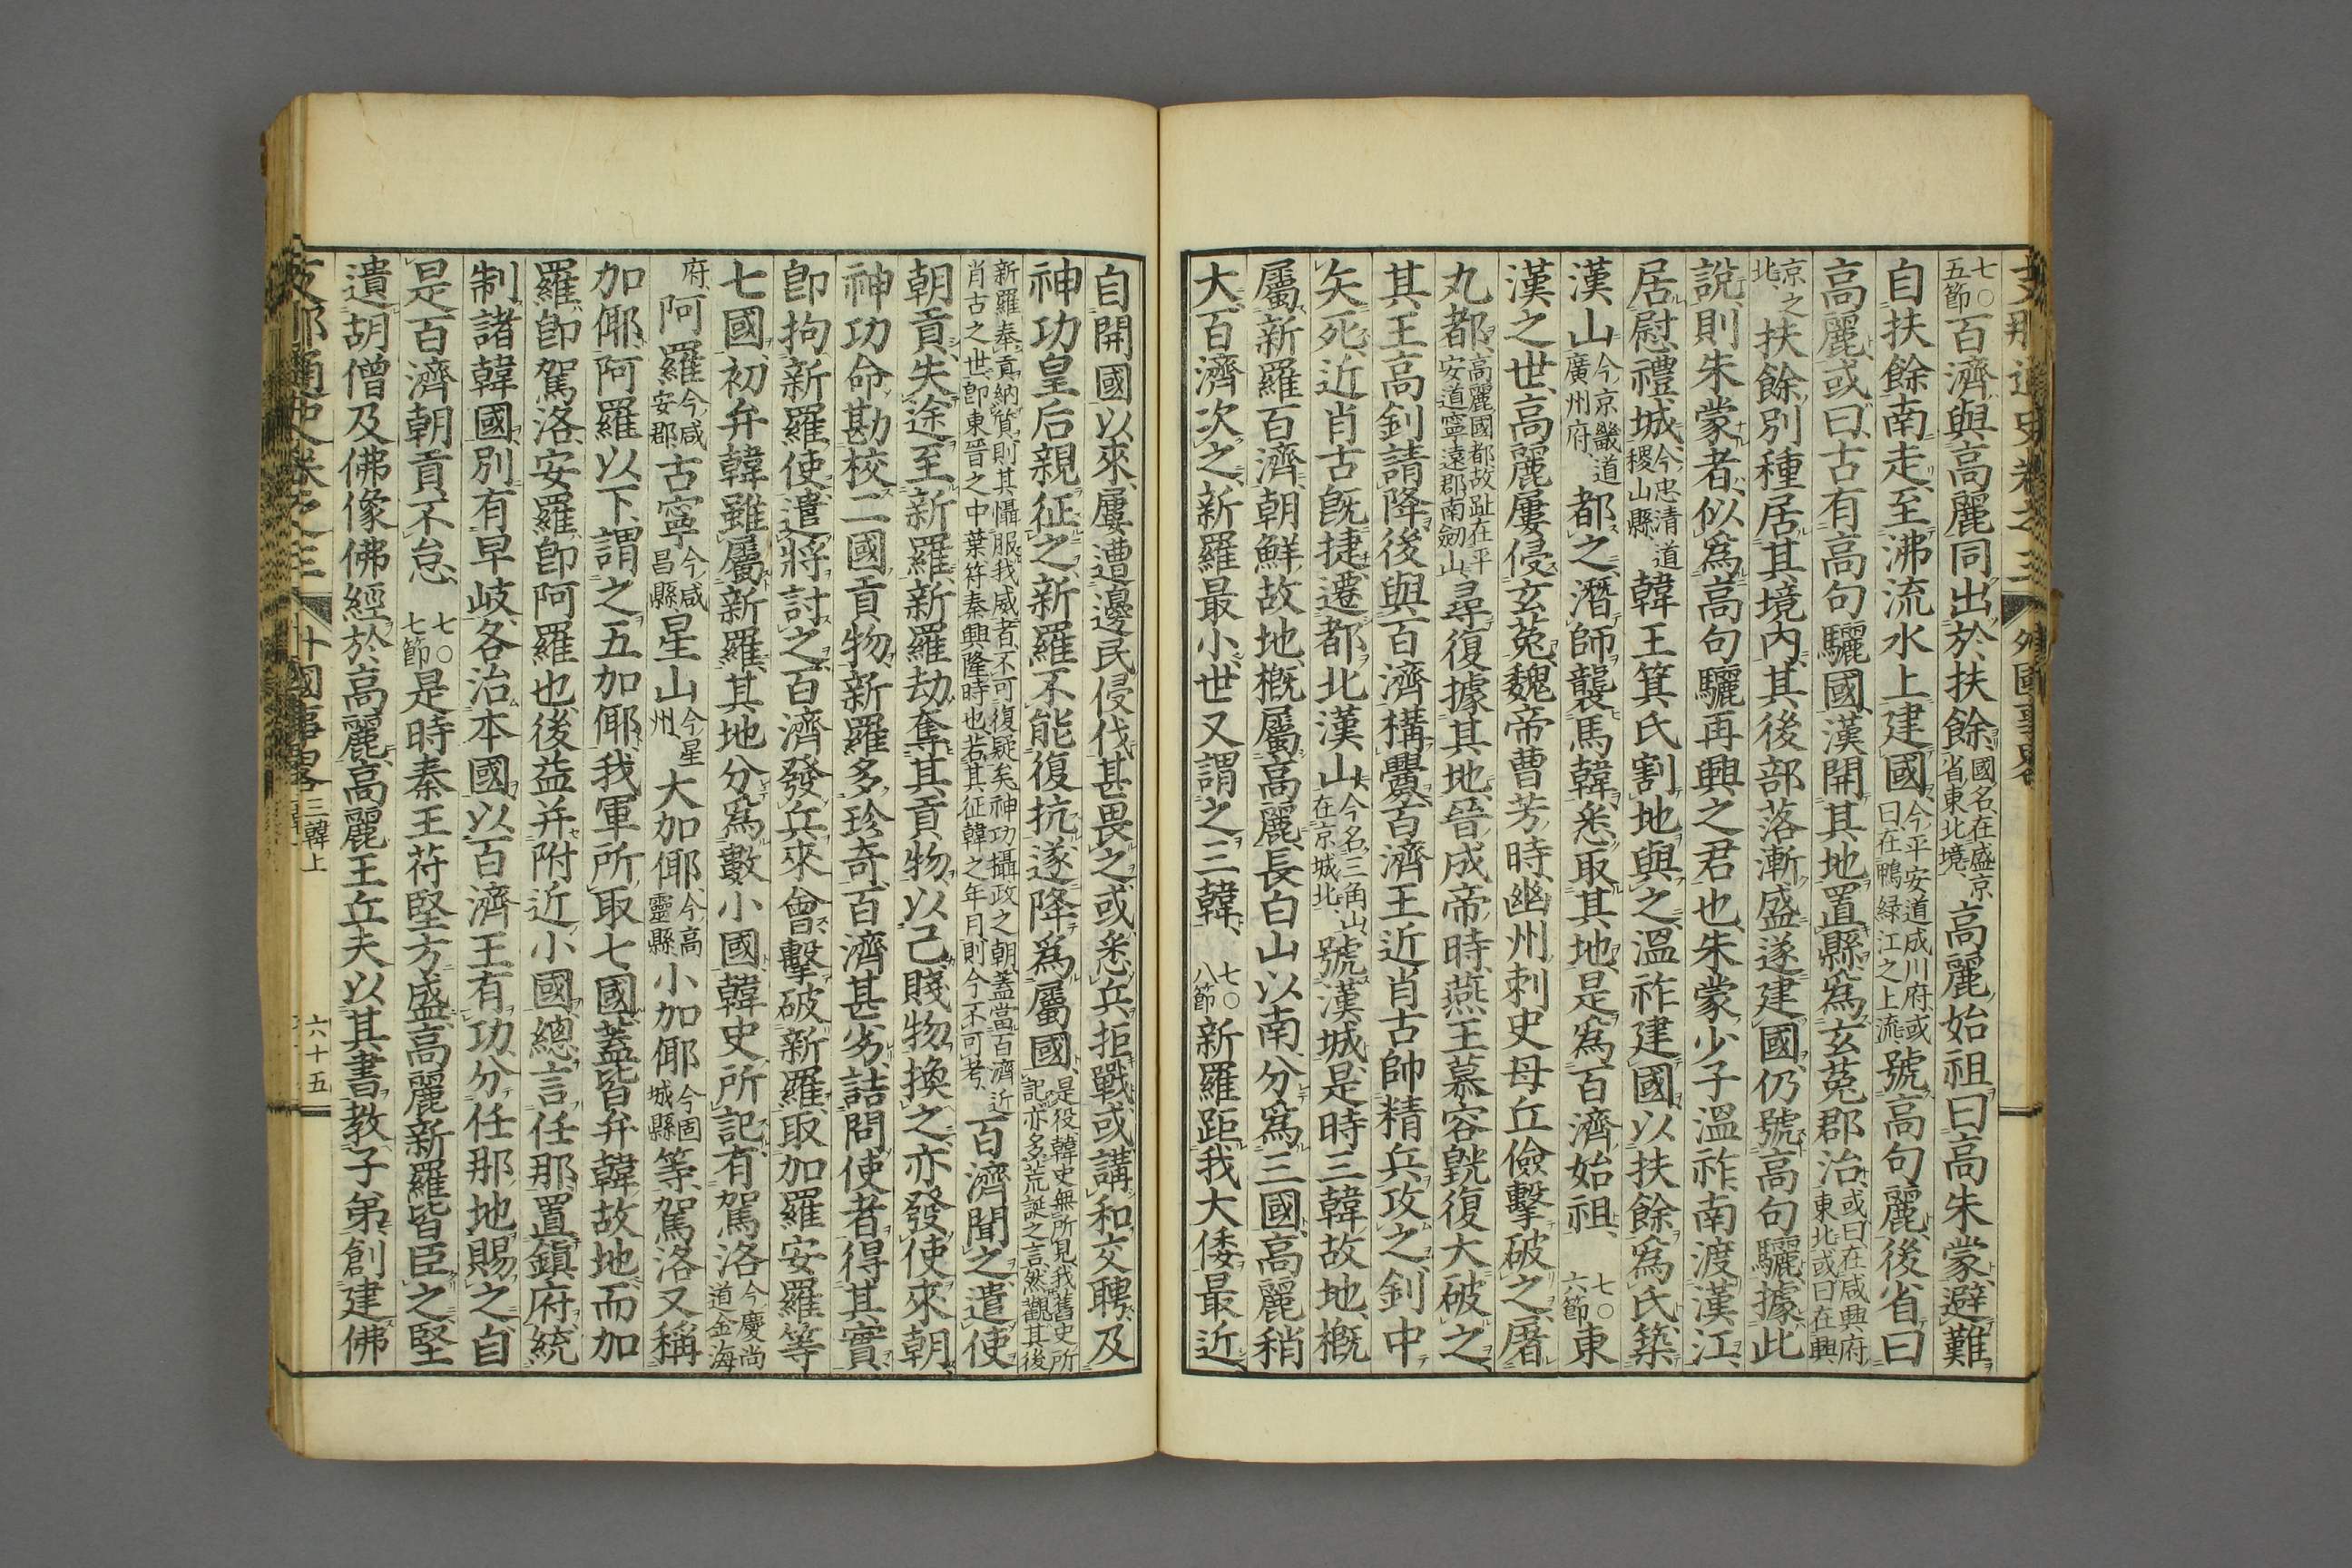 支那通史卷之三 外國事略
七〇五節 百濟與高麗同出於扶餘、國名在盛京省東北境、高麗始祖曰高朱蒙、避難
自扶餘南走、至沸流水上建國、今平安道成川府、或曰、在鴨緑江之上流、號高句麗、後省曰
高麗、或曰、古有高句驪國、漢開其地、置縣、爲玄菟郡治、或曰、在咸興府東北、或曰在興
京之北、扶餘別種居其境內、其後部落漸盛、遂建國、仍號高句驪、據此
說、則朱蒙者、似爲高句驪再興之君也、朱蒙少子溫祚、南渡漢江、
居慰禮城、今忠清道稷山縣 韓王箕氏割地與之、溫祚建國、以扶餘爲氏、築
漢山 今京畿道廣州府、都之、潛師襲馬韓、悉取其地、是爲百濟始祖、 七〇六節 東
漢之世、高麗屢侵玄菟、魏帝曹芳時、幽州刺史毋丘儉擊破之、屠
丸都、高麗國都故趾在平安道寧遠郡南劒山、尋復據其地、晉成帝時、燕王慕容皝復大破之、
其王高釗請降、後與百濟構釁、百濟王近肖古帥精兵攻之、釗中
矢死、近肖古既捷、遷都北漢山、今名三角山、在京城北、號漢城、是時三韓故地、概
屬新羅百濟、朝鮮故地、概屬高麗、長白山以南、分爲三國、高麗稍
大、百濟次之、新羅最小、世又謂之三韓、 七〇八節 新羅距我大倭最近、
自開國以來、屢遭邊民侵伐、甚畏之、或悉兵拒戰、或講和交聘、及
神功皇后親征之、新羅不能復抗、遂降爲屬國、是役韓史無所見、我舊史所記、亦多荒誕之言、然觀其後
新羅奉貢納質、則其懾服我威者、不可復疑矣、神功攝政之朝、蓋當百濟近肖古之世、即東晉之中葉、符秦興隆時也、若其征韓之年月、則今不可考、百濟聞之、遣使
朝貢、失途至新羅、新羅劫奪其貢物、以己賤物換之、亦發使來朝、
神功命勘校二國貢物、新羅多珍奇、百濟甚劣、詰問使者、得其實、
卽拘新羅使、遣將討之、百濟發兵來會、擊破新羅、取加羅安羅等
七國、初弁韓雖屬新羅、其地分爲數小國、韓史所記、有駕洛 今慶尚道金海
府、阿羅 今咸安郡 古寧 今咸昌縣 星山 今星州 大加倻 今高靈縣 小加倻 今固城縣 等、駕洛又稱
加倻、阿羅以下、謂之五加倻、我軍所取七國、蓋皆弁韓故地、而加
羅、卽駕洛、安羅、卽阿羅也、後益并附近小國、總言任那、置鎭府、統
制諸韓國、別有早岐、各治本國、以百濟王有功、分任那地賜之、自
是百濟朝貢不怠、 七〇七節 是時秦王苻堅方盛、高麗新羅皆臣之、堅
遺胡僧及佛像佛經於高麗、高麗王丘夫以其書教子弟、創建佛
支那通史卷之三 外國事略 三韓上 六十五